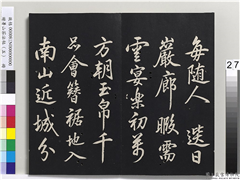 每随人
選日
巖廊暇需
雲宴樂初萬
方朝玉帛千
品會簪裾地入
南山近城分
27